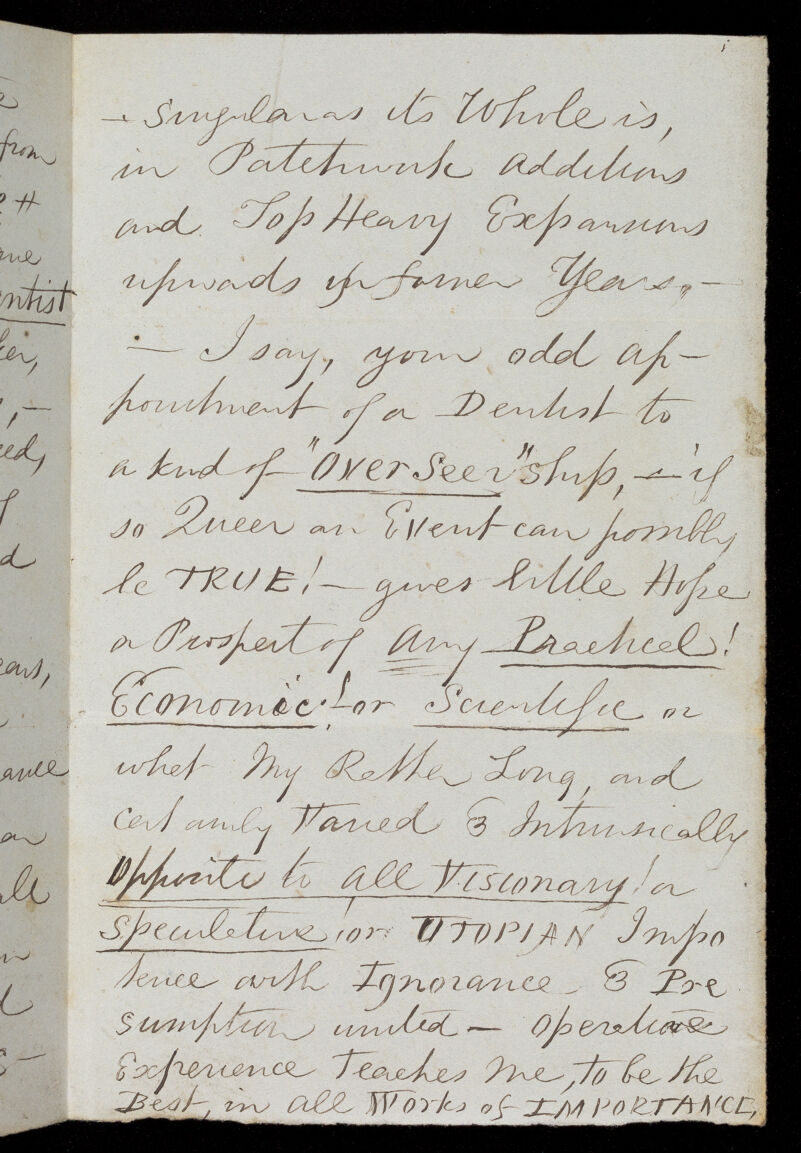 — Singular as its Whole is,
in Patchwork additions
and Top Heavy Expansions
upwards in former Years, —
— I say, your odd ap-
pointment of a Dentist to
a kind of "OverSeer"ship, — if
so Queer an Event can possibly
be TRUE! — gives little Hope
or Prospect of Any Practical!
Economic! — or Scientific or
what My Rather Long, and
certainly Varied & Intrinsically
Opposite to all Visionary! or
Speculative! or UTOPIAN Impo
tence with Ignorance & Pre
sumption united — Operations
Experience Teaches Me, to be the
Best, in all Works of IMPORTANCE,
from
H
entist